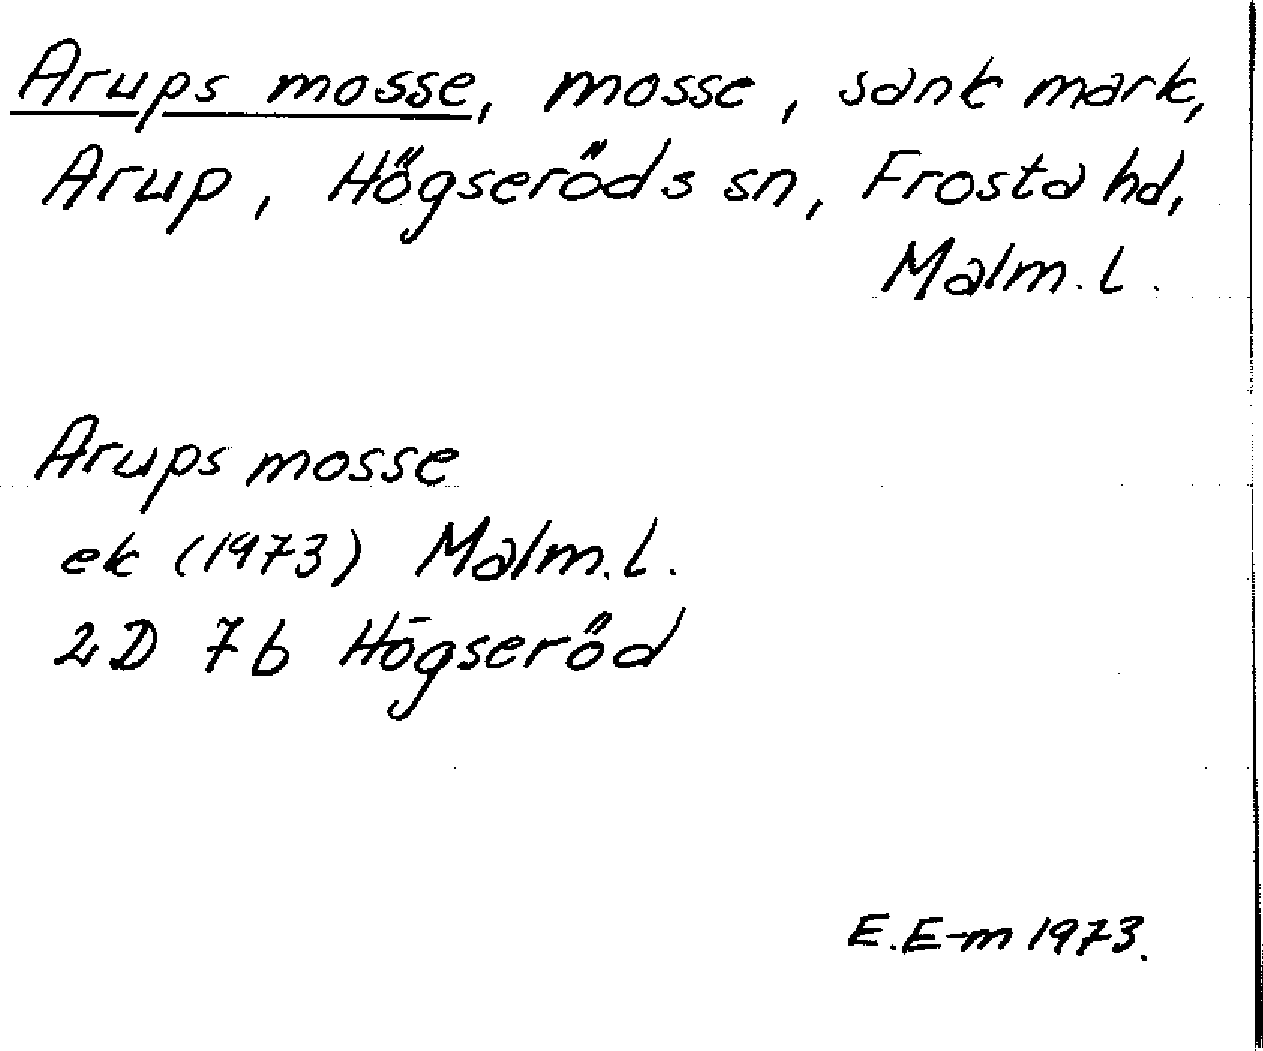 Arups mosse, mosse, sank mark,
Arup, Högseröds sn, Frosta hd,
Malm. l.
Arups mosse
ek (1973) Malm. l.
2D 7b Högseröd
E. E-m 1973.